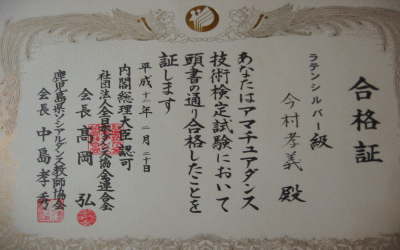 合格証
ラテンシルバー級
今村孝義 殿
あなたはアマチュアダンス
技術検定試験において
頭書の通り合格したことを
証します
平成十一年二月二十日
内閣総理大臣認可
社団法人全日本ダンス協会連合会
会長 高岡 弘
鹿児島県ソシアルダンス教師協会
会長 中島孝秀